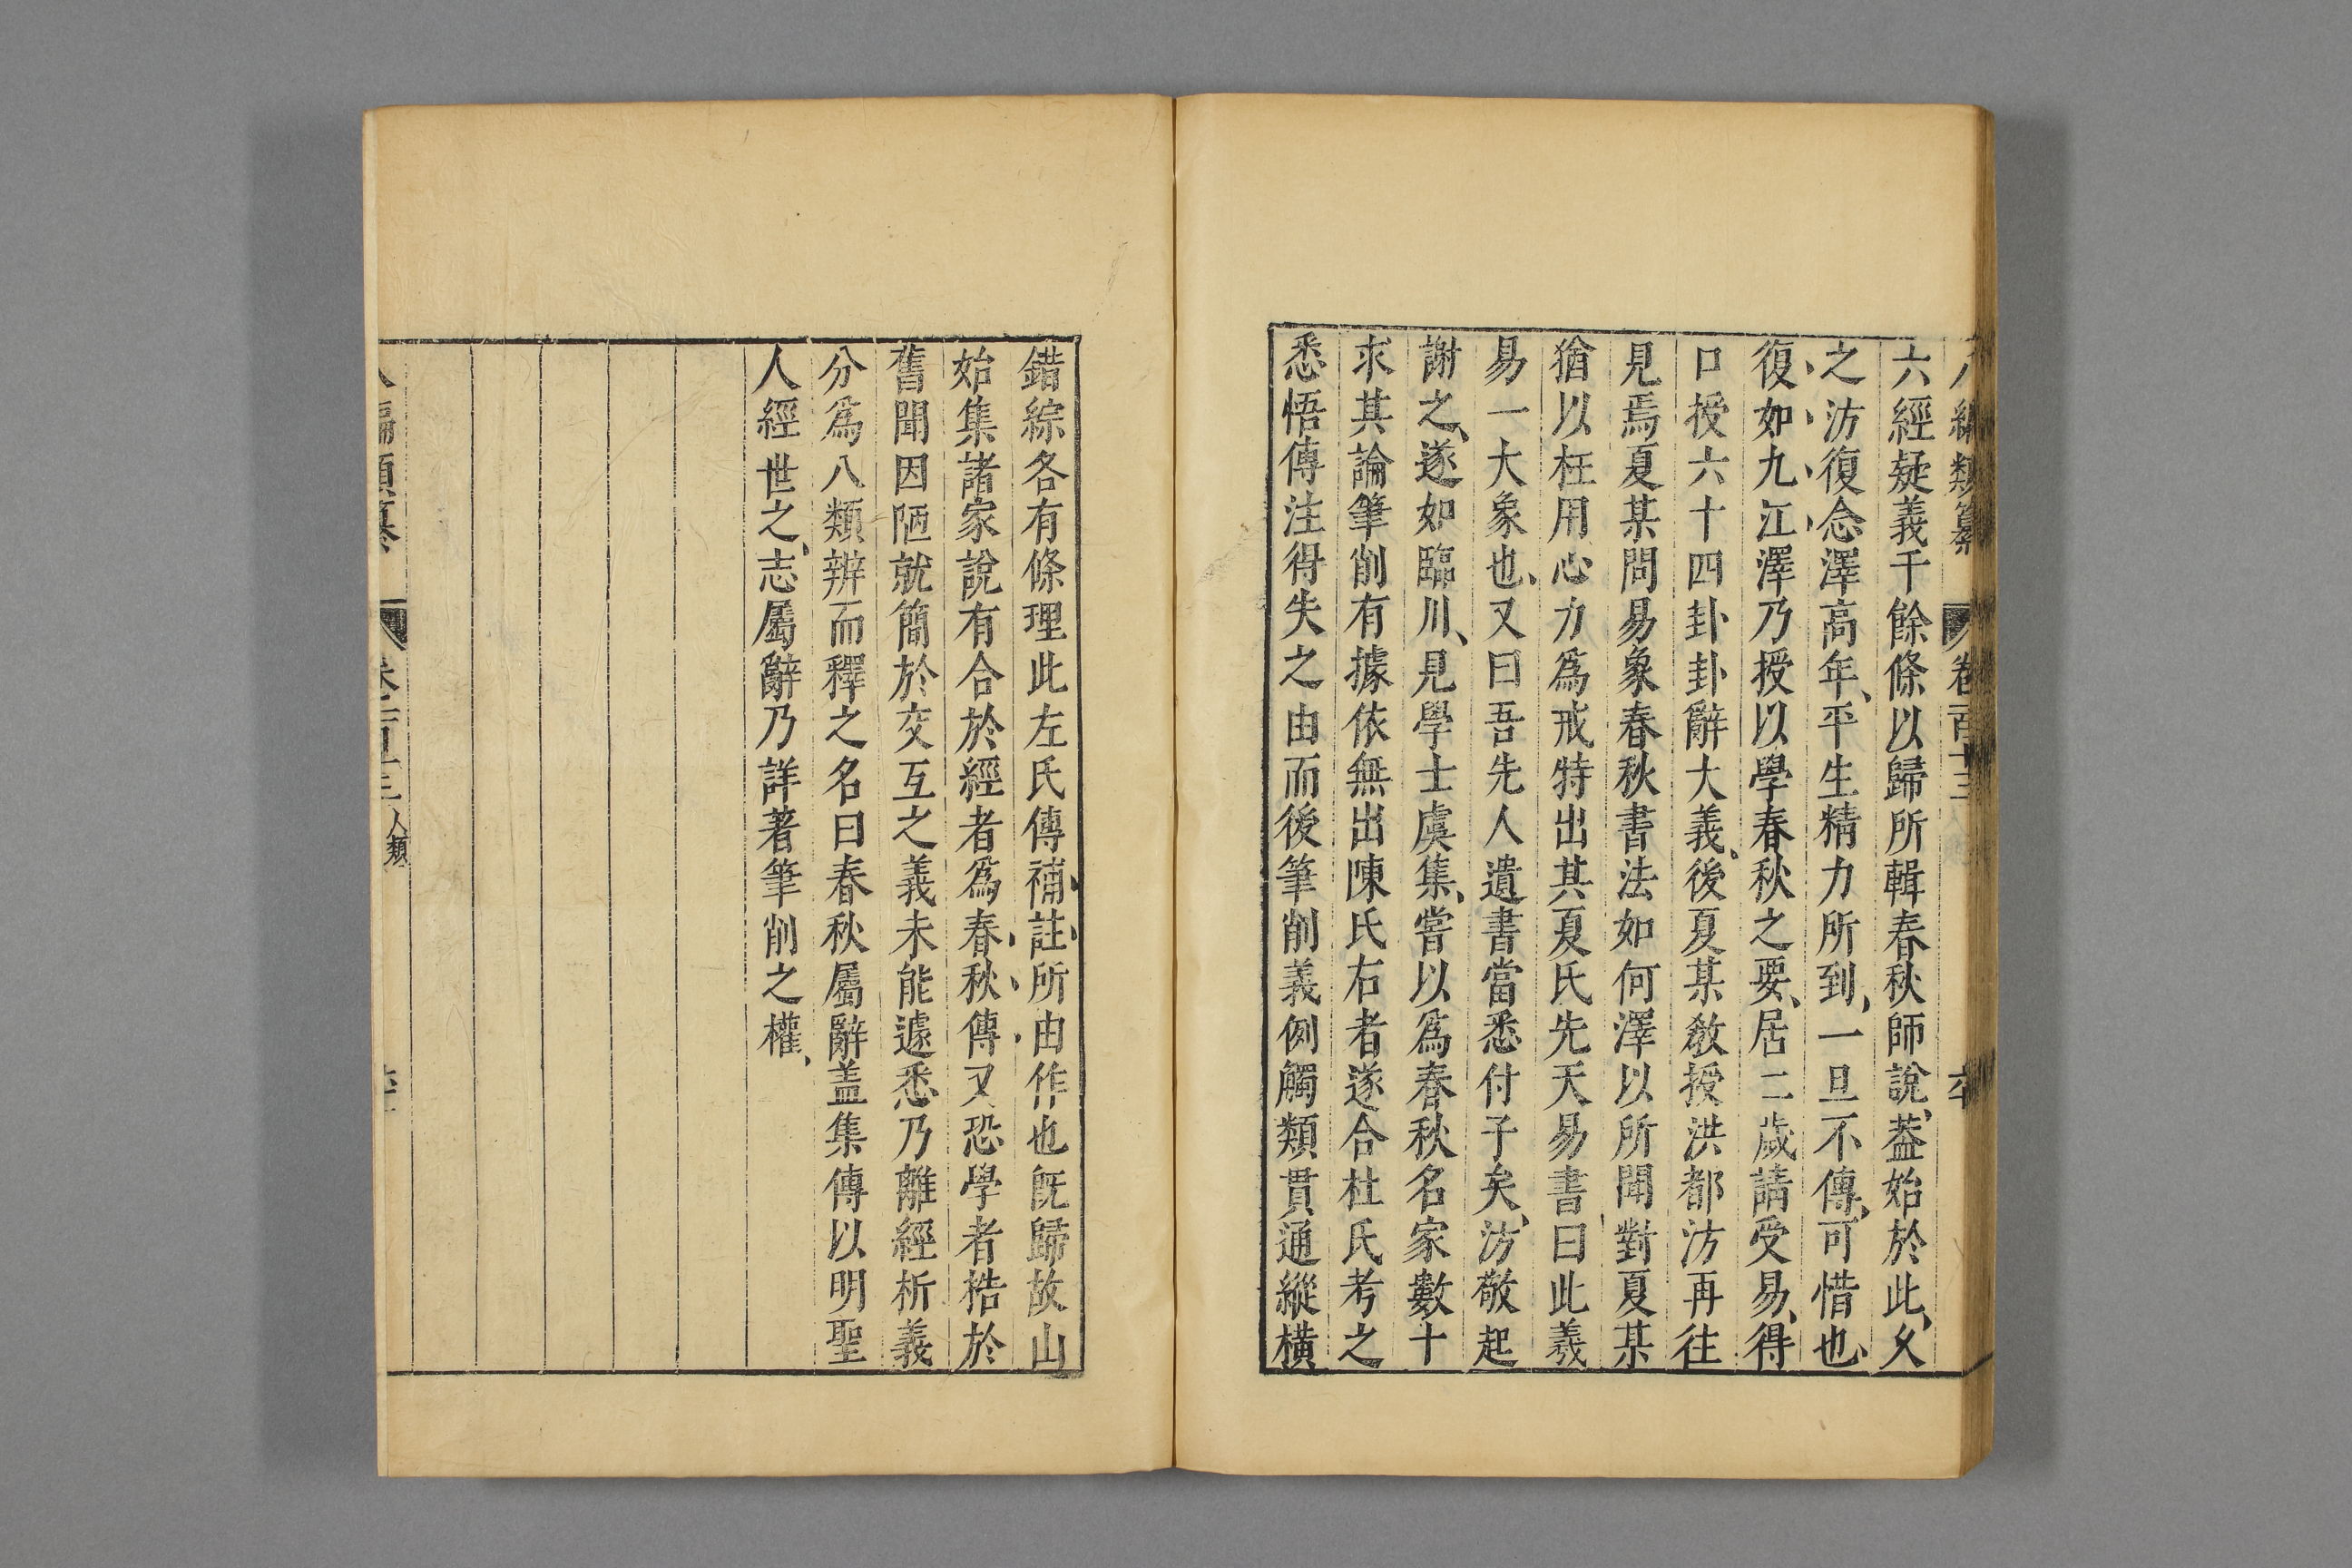 八編類纂 卷百十三
六經疑義千餘條以歸所輯春秋師說、葢始於此、乆
之汸復念澤高年、平生精力所到、一旦不傳、可惜也、
復如九江澤乃授以學春秋之要、居二歲請受易、得
口授六十四卦卦辭大義、後夏某敎授洪都汸再往
見焉夏某問易象春秋書法如何澤以所聞對夏某
猶以枉用心力爲戒特出其夏氏先天易書曰此羲
易一大象也、又曰吾先人遺書當悉付子矣、汸敬起
謝之、遂如臨川、見學士虞集、嘗以爲春秋名家數十
求其論筆削有據依無出陳氏右者遂合杜氏考之
悉悟傳注得失之由而後筆削義例觸類貫通縱橫
錯綜各有條理此左氏傳補註所由作也旣歸故山
始集諸家說有合於經者爲春秋傳又恐學者梏於
舊聞因陋就簡於交互之義未能遽悉乃離經析義
分爲八類辨而釋之名曰春秋屬辭盖集傳以明聖
人經世之志屬辭乃詳著筆削之權、
編類纂 卷百十三 人類